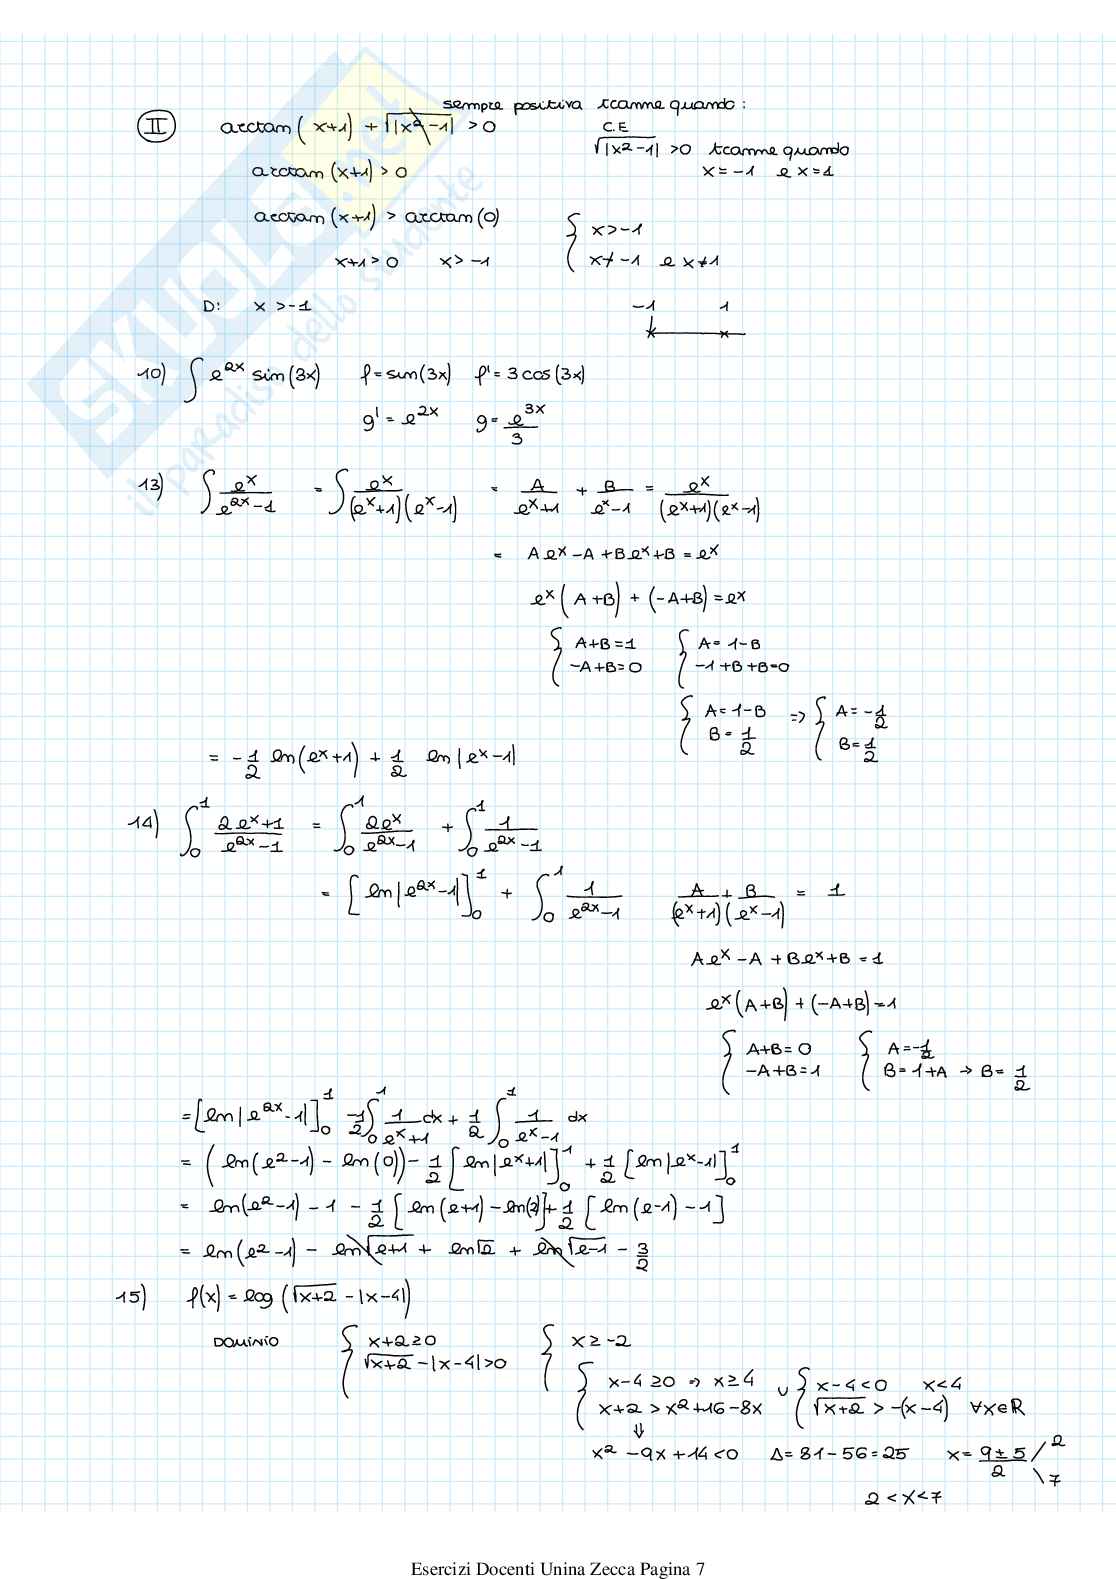 sempre positiva tranne quando :
II arctan( x+1) + √|x² -1| > 0 C.E
√|x²-1| >0 tranne quando
arctan (x+1) > 0 x = -1 e x=1
arctan (x+1) > arctan (0) { x>-1
x+1 > 0 x > -1 x≠-1 e x≠1
D: x >-1 -1 1
10) ∫ e^2x sin(3x) f= sin(3x) f' = 3 cos(3x)
g' = e^2x g= e^3x/3
13) ∫ e^x/(e^2x-1) = ∫ e^x/((e^x+1)(e^x-1)) = A/(e^x+1) + B/(e^x-1) = e^x/((e^x+1)(e^x-1))
= Ae^x -A +Be^x+B = e^x
e^x ( A+B) + (-A+B) = e^x
{ A+B=1 { A= 1-B
-A+B=0 -1 +B +B=0
{ A=1-B => { A= -1/2
B= 1/2 B=1/2
= -1/2 ln(e^x+1) + 1/2 ln|e^x-1|
14) ∫₀¹ (2e^x+1)/(e^2x-1) = ∫₀¹ 2e^x/(e^2x-1) + ∫₀¹ 1/(e^2x-1)
= [ln|e^2x-1|]₀¹ + ∫₀¹ 1/(e^2x-1) (A + B)/((e^x+1)(e^x-1)) = 1
Ae^x -A + Be^x+B =1
e^x(A+B) + (-A+B) =1
{ A+B= 0 { A=-1/2
-A+B=1 B= 1+A → B= 1/2
= [ln|e^2x-1|]₀¹ -1/2 ∫₀¹ 1/(e^x+1) dx + 1/2 ∫₀¹ 1/(e^x-1) dx
= ( ln(e²-1) - ln(0)) - 1/2 [ln|e^x+1|]₀¹ + 1/2 [ln|e^x-1|]₀¹
= ln(e²-1) - 1 - 1/2 [ln(e+1) - ln(2)] + 1/2 [ln(e-1) -1]
= ln(e²-1) - ln√e+1 + ln√2 + ln√e-1 - 3/2
15) f(x) = log (√x+2 - |x-4|)
DOMINIO { x+2≥0 { x≥ -2
√x+2 - |x-4|>0
{ x-4 ≥0 => x≥4 ∪ { x-4<0 x<4
x+2 > x²+16-8x √x+2 > -(x-4) ∀x∈R
⇓
x² -9x +14<0 Δ= 81-56=25 x= (9±5)/2 / 2 \ 7
2 < x<7
SKUOLA.net
il paradiso dello studente
Esercizi Docenti Unina Zecca Pagina 7